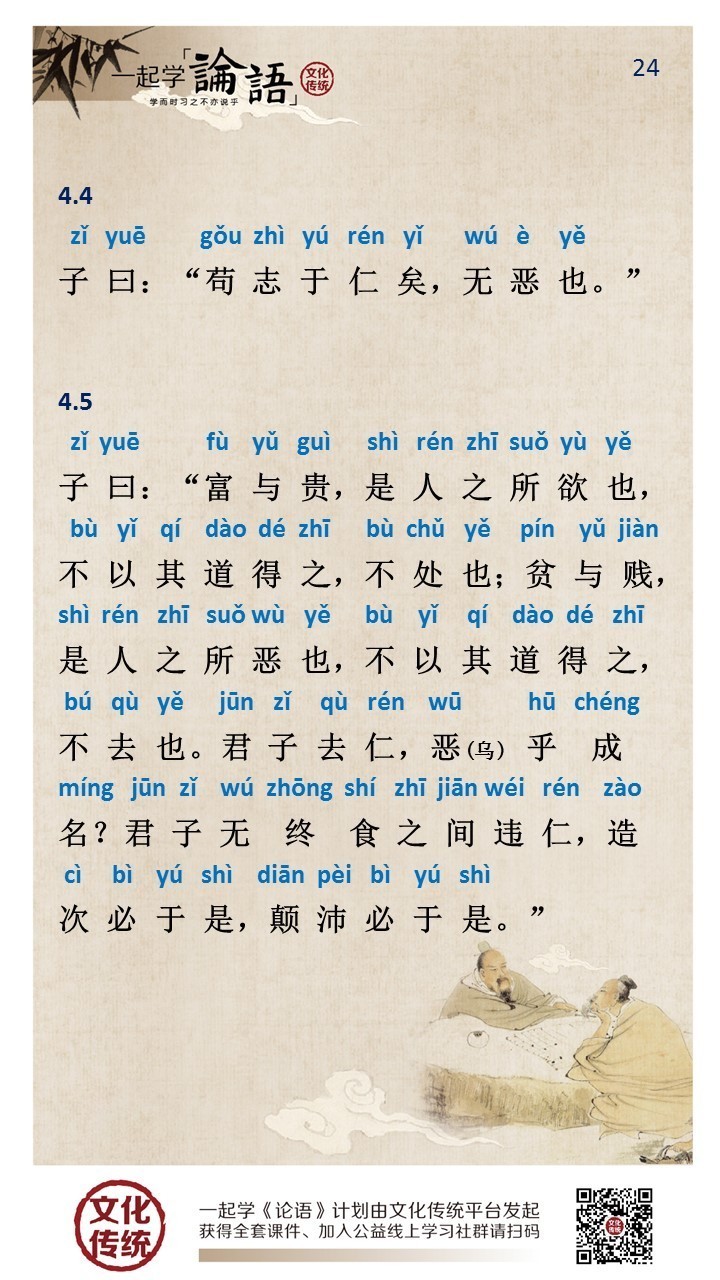 一起学「論語」
文化
传统
学而时习之不亦说乎
24
4.4
zǐ yuē gǒu zhì yú rén yǐ wú è yě
子曰：“苟志于仁矣，无恶也。”
4.5
zǐ yuē fù yǔ guì shì rén zhī suǒ yù yě
子曰：“富与贵，是人之所欲也，
bù yǐ qí dào dé zhī bù chǔ yě pín yǔ jiàn
不以其道得之，不处也；贫与贱，
shì rén zhī suǒ wù yě bù yǐ qí dào dé zhī
是人之所恶也，不以其道得之，
bú qù yě jūn zǐ qù rén wū hū chéng
不去也。君子去仁，恶(乌)乎成
míng jūn zǐ wú zhōng shí zhī jiān wéi rén zào
名？君子无终食之间违仁，造
cì bì yú shì diān pèi bì yú shì
次必于是，颠沛必于是。”
文化
传统
一起学《论语》计划由文化传统平台发起
获得全套课件、加入公益线上学习社群请扫码
文化
传统